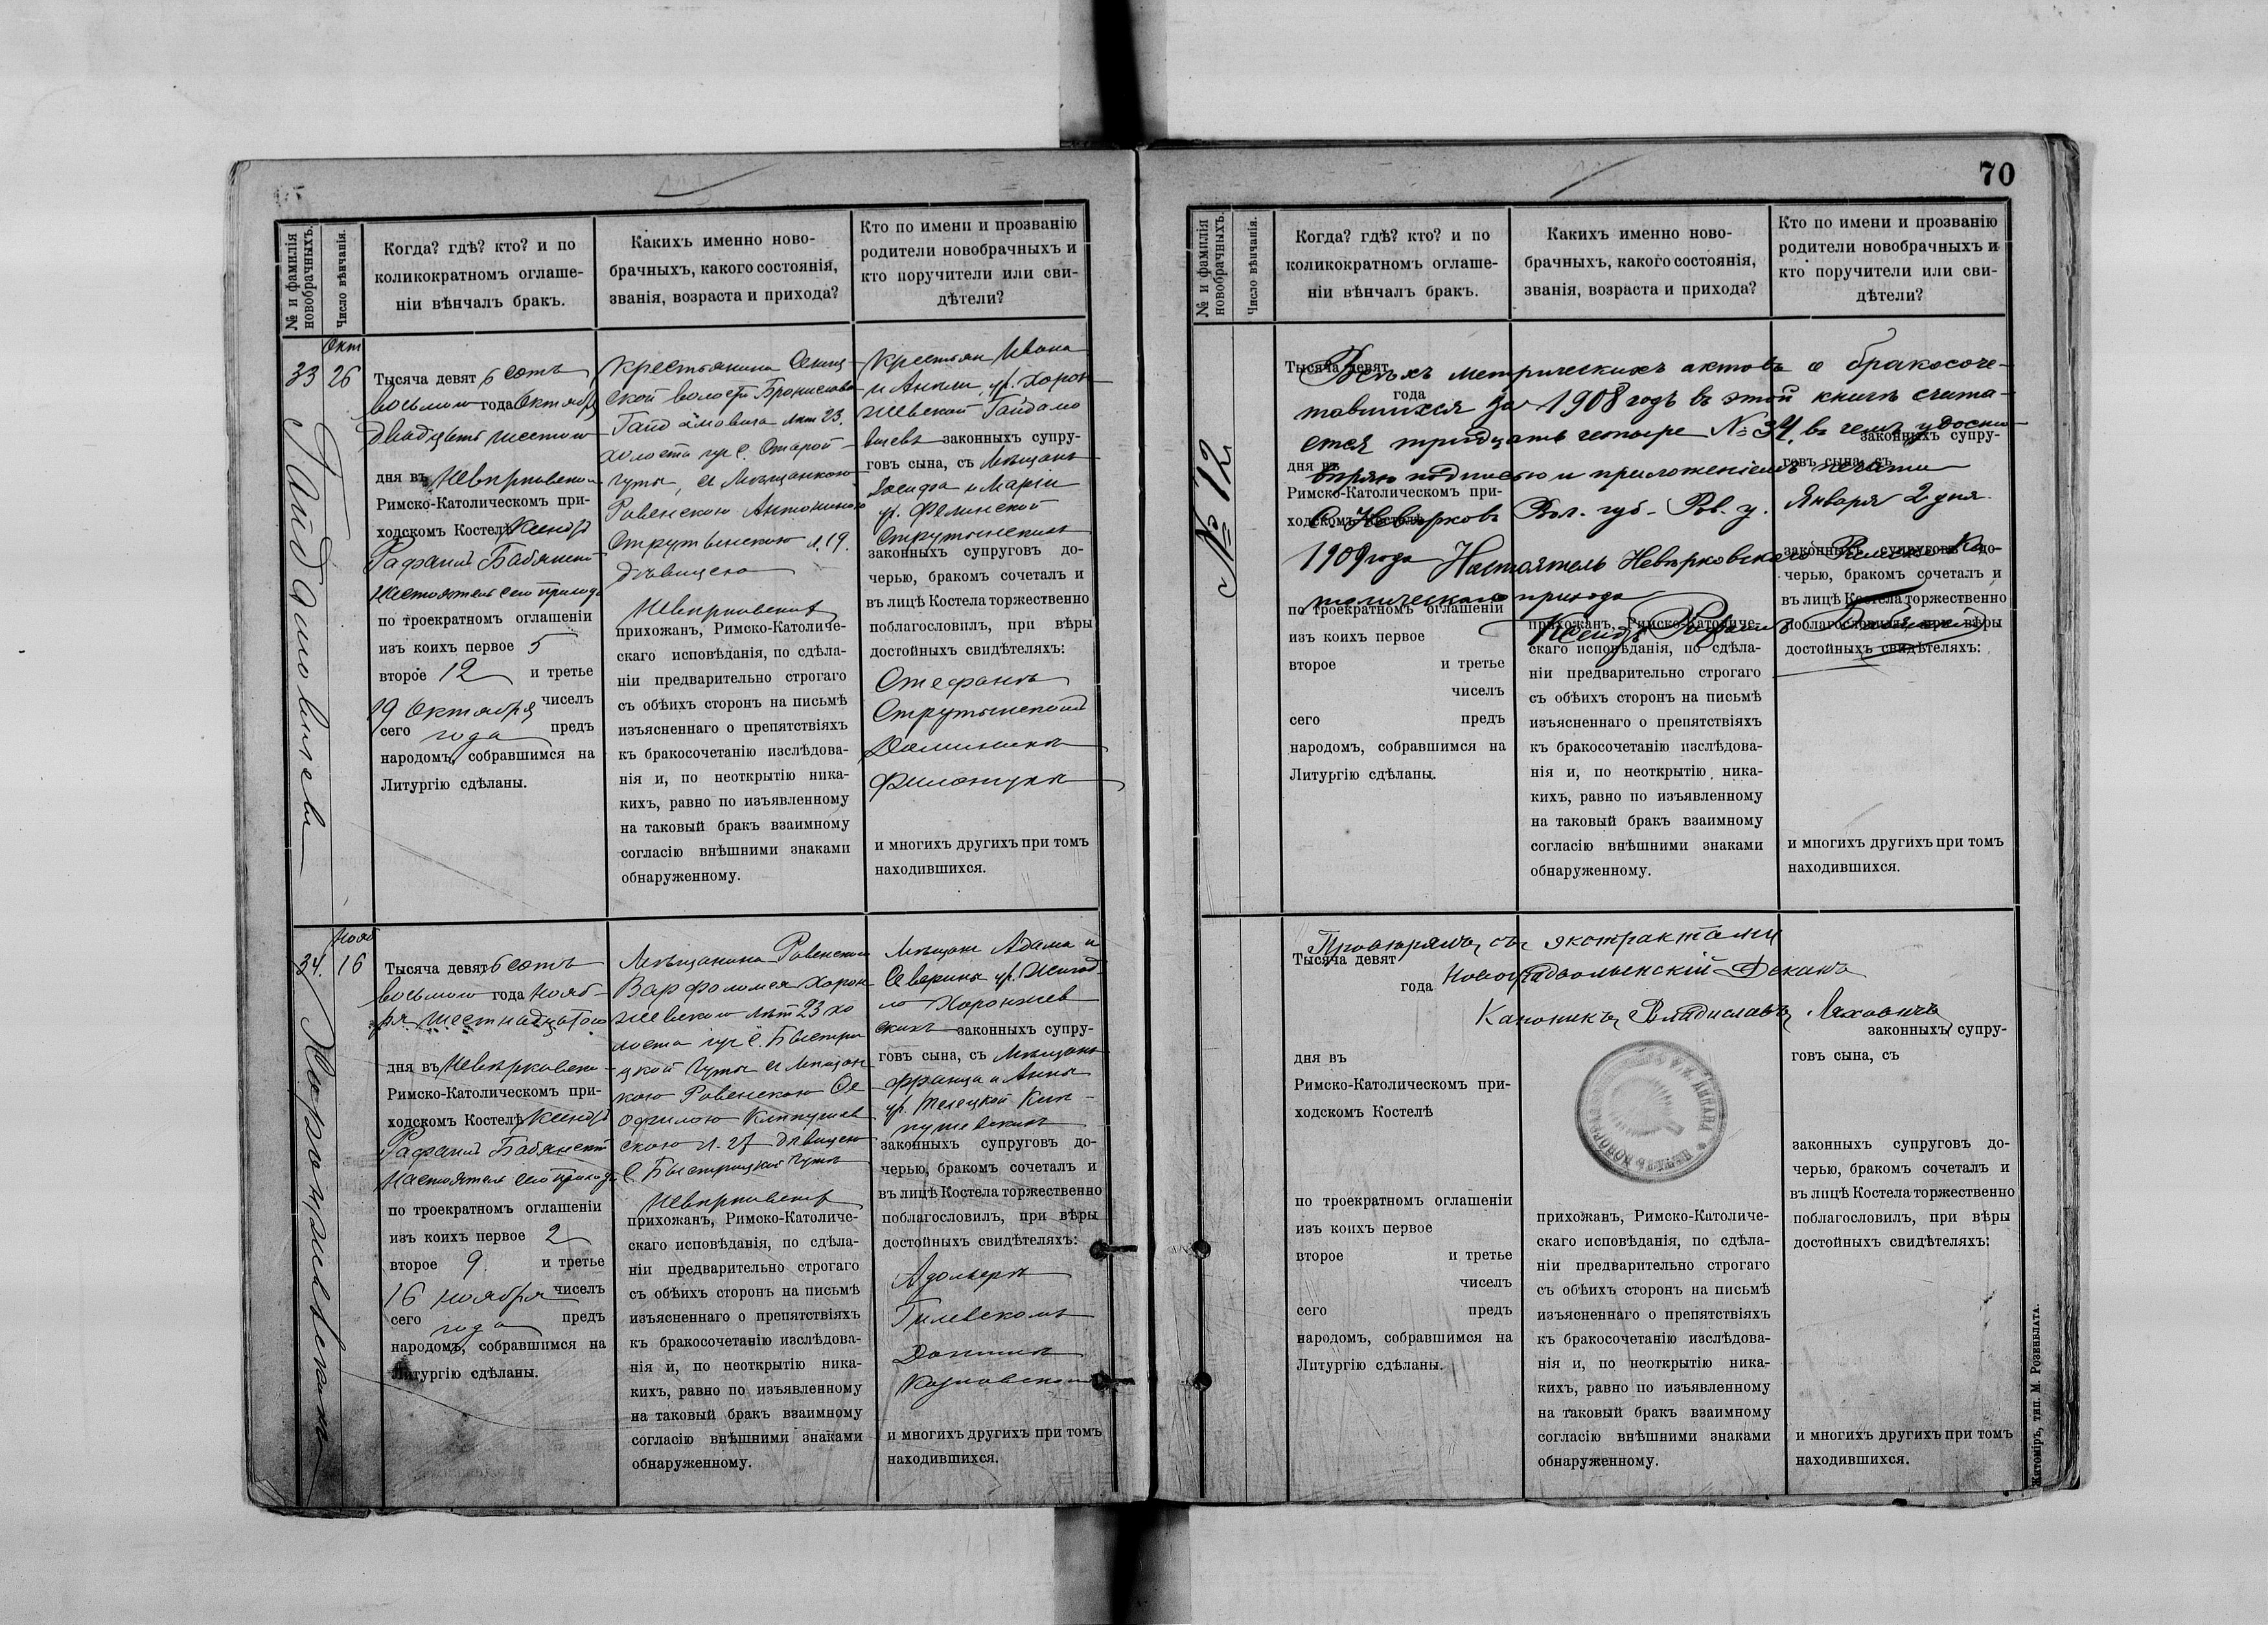 № и фамилія
новобрачныхъ.
Число вѣнчанія.
Когда? гдѣ? кто? и по
коликократномъ оглаше-
ніи вѣнчалъ бракъ.
Какихъ именно ново-
брачныхъ, какого состоянія,
званія, возраста и прихода?
Кто по имени и прозванію
родители новобрачныхъ и
кто поручители или сви-
дѣтели?
33
Окт
26
Гайдамовичи
Тысяча девятьсотъ
восьмого года Октября
двадцать шестого
дня въ Невѣрковскомъ
Римско-Католическомъ при-
ходскомъ Костелѣ Ксендзъ
Рафаилъ Бабянскій
Настоятель сего прихода
по троекратномъ оглашеніи
изъ коихъ первое 5
второе 12 и третье
19 Октября чиселъ
сего года предъ
народомъ, собравшимся на
Литургію сдѣланы.
Крестьянина
ской волости Бронислава
Гайдамовича лѣт 23.
холоста изъ с. Старой
Гуты, съ Мѣщанкою
Ровенскою Антониною
Струтынскою л. 19.
дѣвицею
Невѣрковских
прихожанъ, Римско-Католиче-
скаго исповѣданія, по сдѣла-
ніи предварительно строгаго
съ обѣихъ сторонъ на письмѣ
изъясненнаго о препятствіяхъ
къ бракосочетанію изслѣдова-
нія и, по неоткрытію ника-
кихъ, равно по изъявленному
на таковый бракъ взаимному
согласію внѣшними знаками
обнаруженному.
Крестьян Ивана
и Анны ур. Хорон-
жевской Гайдамо
вичевъ законныхъ супру-
говъ сына, съ Мѣщанъ
Іосифа и Маріи
ур. Фелинской
Струтынскихъ
законныхъ супруговъ до-
черью, бракомъ сочеталъ и
въ лицѣ Костела торжественно
поблагословилъ, при вѣры
достойныхъ свидѣтеляхъ:
Стефанѣ
Струтынскомъ
Доминикѣ
и многихъ другихъ при томъ
находившихся.
34.
Нояб
16
Хоронжевскихъ
Тысяча девятьсотъ
восьмого года Нояб-
ря шестнадцатого
дня въ Невѣрковско-
Римско-Католическомъ при-
ходскомъ Костелѣ Ксендзъ
Рафаилъ Бабянскій
Настоятель сего прихода
по троекратномъ оглашеніи
изъ коихъ первое 2
второе 9. и третье
16 ноября чиселъ
сего года предъ
народомъ, собравшимся на
Литургію сдѣланы.
Мѣщанина Ровенского
Варфоломея Хорон-
жевского лѣт 23 хо
лоста изъ с. Быстри
цкой Гуты съ Мѣщан
кою Ровенскою Ѳе
офилою
скою л. 27 дѣвицею
с. Быстрицкой Гуты
Невѣрковских
прихожанъ, Римско-Католиче-
скаго исповѣданія, по сдѣла-
ніи предварительно строгаго
съ обѣихъ сторонъ на письмѣ
изъясненнаго о препятствіяхъ
къ бракосочетанію изслѣдова-
нія и, по неоткрытію ника-
кихъ, равно по изъявленному
на таковый бракъ взаимному
согласію внѣшними знаками
обнаруженному.
Мѣщанъ Адама и
Северины ур.
Хоронжев
скихъ законныхъ супру-
говъ сына, съ Мѣщанъ
Франца и Анны
ур.
законныхъ супруговъ до-
черью, бракомъ сочеталъ и
въ лицѣ Костела торжественно
поблагословилъ, при вѣры
достойныхъ свидѣтеляхъ:
Адольфѣ
Гилевскомъ
Козловскомъ
и многихъ другихъ при томъ
находившихся.
70
№ и фамилія
новобрачныхъ.
Число вѣнчанія.
Когда? гдѣ? кто? и по
коликократномъ оглаше-
ніи вѣнчалъ бракъ.
Какихъ именно ново-
брачныхъ, какого состоянія,
званія, возраста и прихода?
Кто по имени и прозванію
родители новобрачныхъ и
кто поручители или сви-
дѣтели?
№ 12
Всѣхъ метрическихъ актовъ о бракосоче-
тавшихся за 1908 годъ въ этой книгѣ счита-
ется тридцать четыре № 34, въ чемъ удосто-
вѣряю подписью и приложеніемъ печати
С. Невѣрковъ Вол. губ. Ров. у. Января 2 дня
1909 года Настоятель Невѣрковского Римско-Ка
толическаго прихода
Ксендзъ Рафаилъ Бабянскій
Тысяча девят
года
дня въ
Римско-Католическомъ при-
ходскомъ Костелѣ
по троекратномъ оглашеніи
изъ коихъ первое
второе и третье
чиселъ
сего предъ
народомъ, собравшимся на
Литургію сдѣланы.
прихожанъ, Римско-Католиче-
скаго исповѣданія, по сдѣла-
ніи предварительно строгаго
съ обѣихъ сторонъ на письмѣ
изъясненнаго о препятствіяхъ
къ бракосочетанію изслѣдова-
нія и, по неоткрытію ника-
кихъ, равно по изъявленному
на таковый бракъ взаимному
согласію внѣшними знаками
обнаруженному.
законныхъ супру-
говъ сына, съ
законныхъ супруговъ до-
черью, бракомъ сочеталъ и
въ лицѣ Костела торжественно
поблагословилъ, при вѣры
достойныхъ свидѣтеляхъ:
и многихъ другихъ при томъ
находившихся.
Провѣрялъ съ экстрактами
Новоградволынскій Деканъ
Каноникъ Владиславъ Ляховичъ
Тысяча девят
года
дня въ
Римско-Католическомъ при-
ходскомъ Костелѣ
по троекратномъ оглашеніи
изъ коихъ первое
второе и третье
чиселъ
сего предъ
народомъ, собравшимся на
Литургію сдѣланы.
прихожанъ, Римско-Католиче-
скаго исповѣданія, по сдѣла-
ніи предварительно строгаго
съ обѣихъ сторонъ на письмѣ
изъясненнаго о препятствіяхъ
къ бракосочетанію изслѣдова-
нія и, по неоткрытію ника-
кихъ, равно по изъявленному
на таковый бракъ взаимному
согласію внѣшними знаками
обнаруженному.
законныхъ супру-
говъ сына, съ
законныхъ супруговъ до-
черью, бракомъ сочеталъ и
въ лицѣ Костела торжественно
поблагословилъ, при вѣры
достойныхъ свидѣтеляхъ:
и многихъ другихъ при томъ
находившихся.
Житоміръ, тип. М. Розенблата.